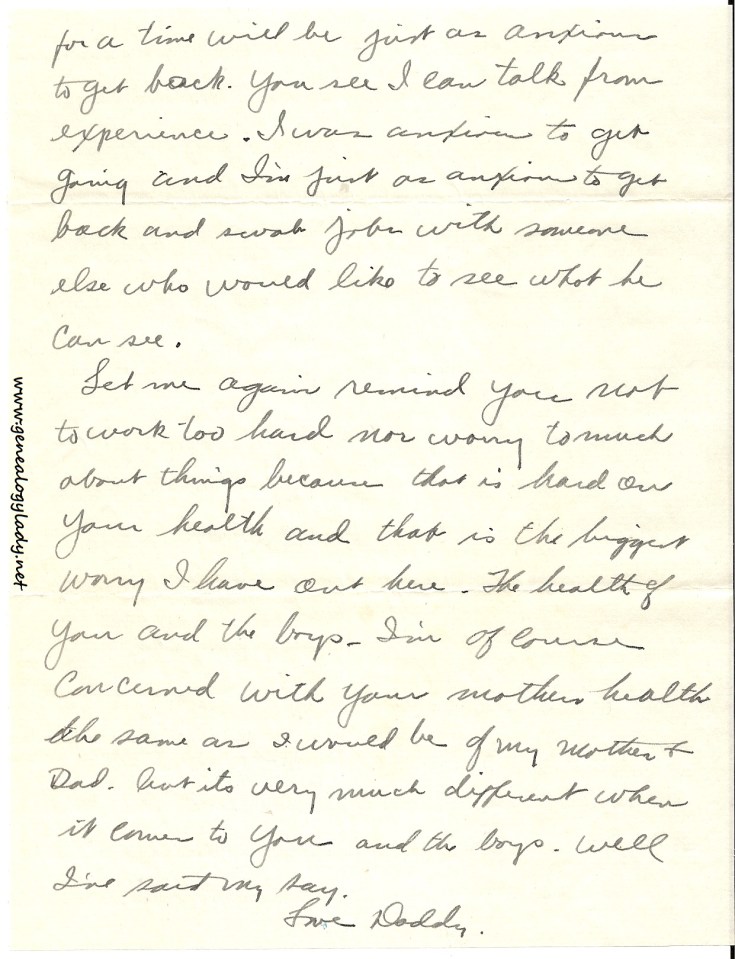 for a time will be just as anxious
to get back. You see I can talk from
experience. I was anxious to get
going and I'm just as anxious to get
back and swab jobs with someone
else who would like to see what he
can see.
Let me again remind you not
to work too hard nor worry to much
about things because that is hard on
your health and that is the biggest
worry I have out here. The health of
you and the boys. I'm of course
concerned with your mothers health
the same as I would be of my mother &
Dad. but its very much different when
it comes to you and the boys. Well
I've said my say.
Love Daddy.
www.genealogylady.net